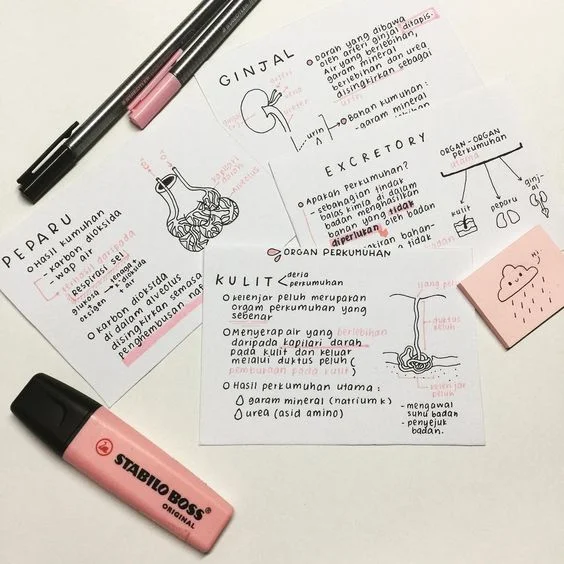 GINJAL
ginjal
ureter
urin
O Darah yang dibawa
oleh arteri ginjal ditapis.
Air yang berlebihan,
garam mineral
berlebihan dan urea
disingkirkan sebagai
urin
O Bahan kumuhan:
- garam mineral
EXCRETORY
O Apakah perkumuhan?
- sebahagian tindak
balas kimia di dalam
badan menghasilkan
bahan yang tidak
diperlukan oleh badan
bahan-
tidak
ORGAN-ORGAN
perkumuhan
utama
kulit
paru
ginj-
al
PEPARU
O Hasil kumuhan
- karbon dioksida
- wap air
terhasil daripada
respirasi sel
glukosa + oksigen → tenaga + k.dioksida + air
O karbon dioksida
di dalam alveolus
disingkirkan semasa
penghembusan
kapilari
darah
alveolus
ORGAN PERKUMUHAN
KULIT < deria
perkumuhan
O kelenjar peluh merupakan
organ perkumuhan yang
sebenar
O Menyerap air yang berlebihan
daripada kapilari darah
pada kulit dan keluar
melalui duktus peluh (
pembukaan pada kulit)
O Hasil perkumuhan utama:
garam mineral (natrium k)
urea (asid amino)
liang peluh
duktus
peluh
kelenjar
peluh
- mengawal
suhu badan
- penyejuk
badan.
Hi.
STABILO BOSS
ORIGINAL